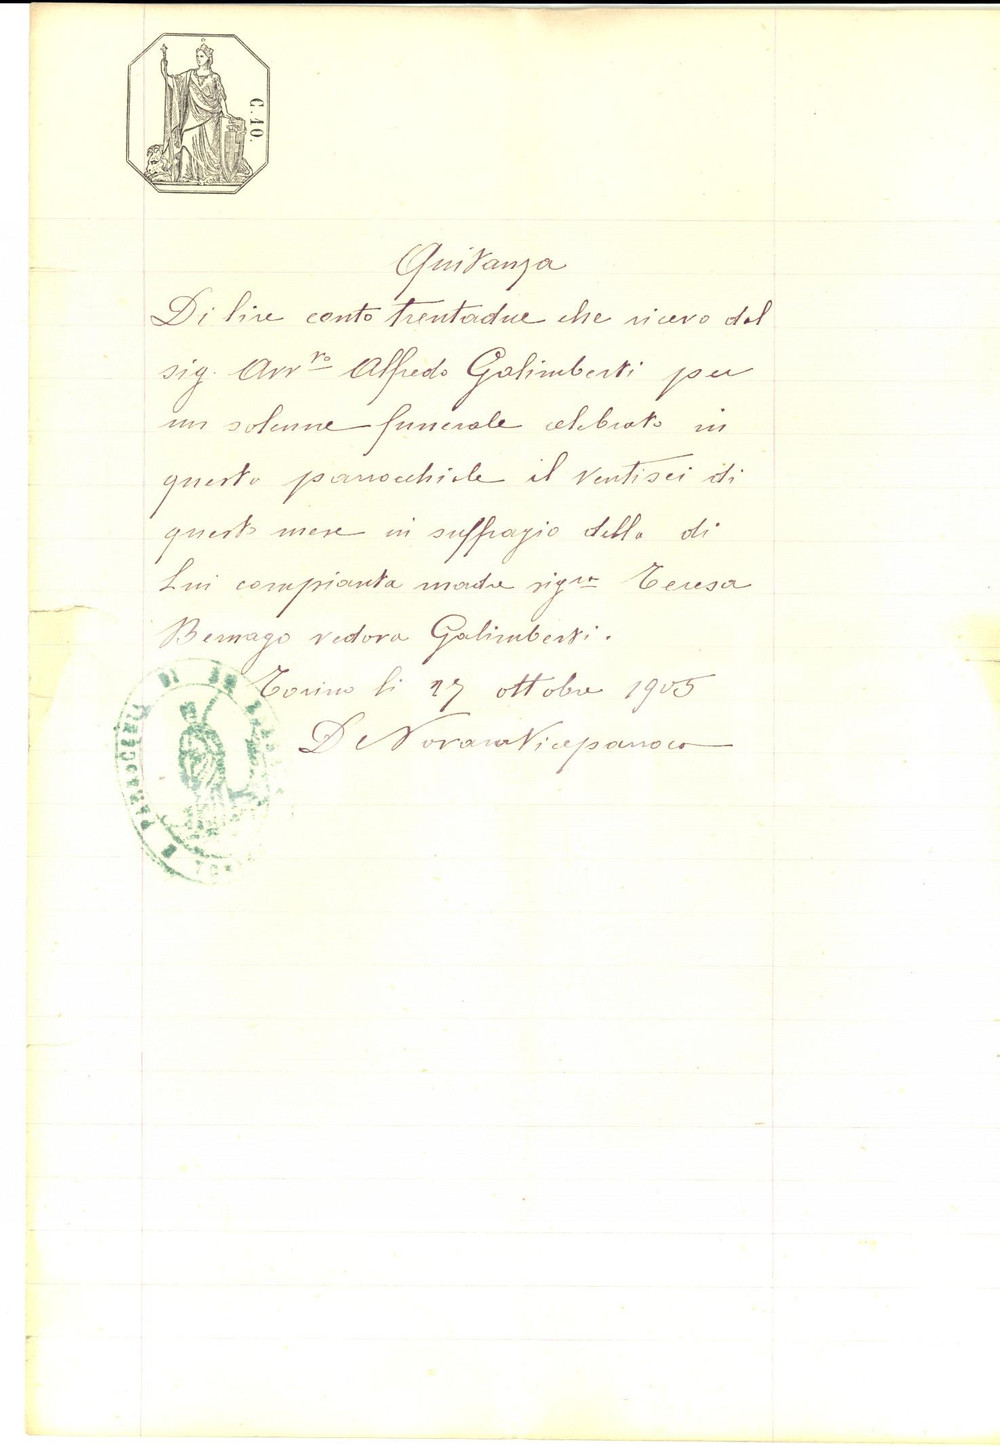 C. 10.
Quitanza
Di lire cento trentadue che ricevo dal
sig. Avv.to Alfredo Galimberti per
un solenne funerale celebrato in
questa parrocchiale il ventisei di
questo mese in suffragio della di
Lui compianta madre sigra Teresa
Bernago vedova Galimberti.
Torino li 27 ottobre 1905
D Novara Viceparroco
PARROCCHIALE DI